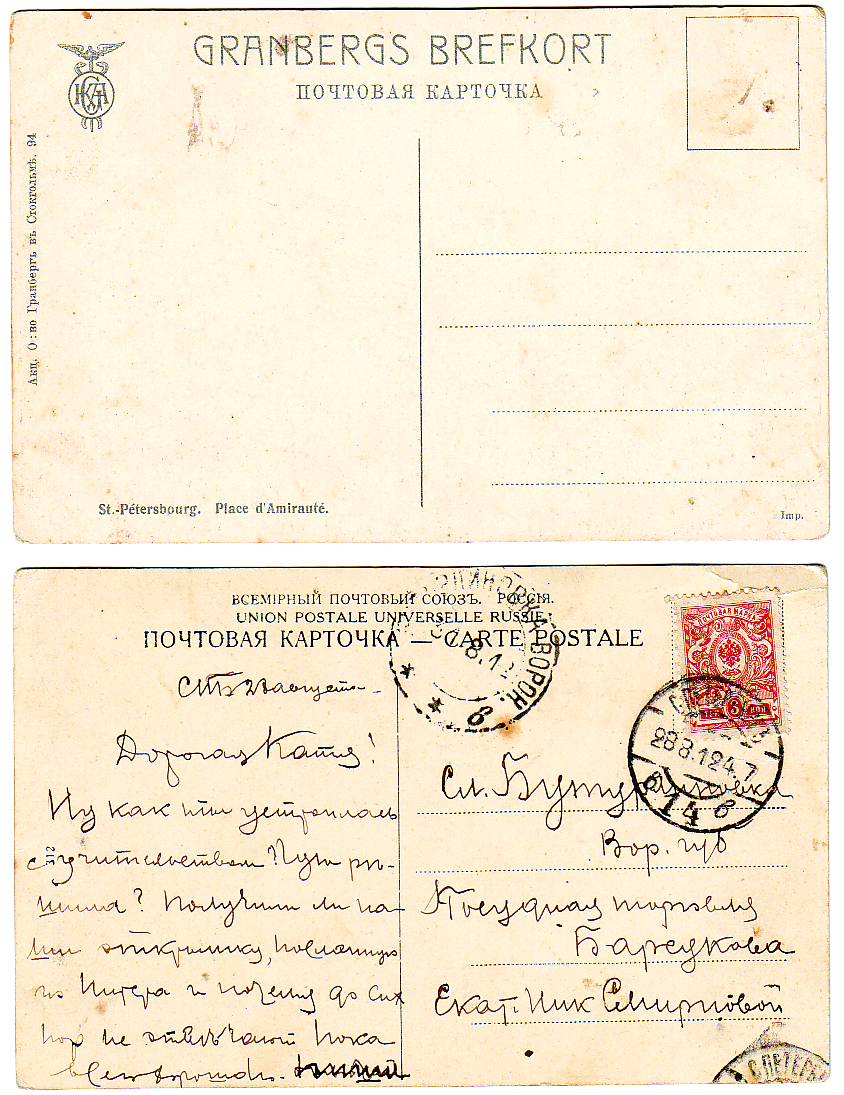 GRANBERGS BREFKORT
ПОЧТОВАЯ КАРТОЧКА
Акц. О:во Гранбергъ въ Стокгольмѣ. 94
St.-Pétersbourg. Place d'Amirauté.
Imp.
ВСЕМІРНЫЙ ПОЧТОВЫЙ СОЮЗЪ. РОССІЯ.
UNION POSTALE UNIVERSELLE RUSSIE.
ПОЧТОВАЯ КАРТОЧКА — CARTE POSTALE
ПОЧТОВАЯ МАРКА
3
ВОРОН.
в
28 8.12 4. 7
14 в
СПБ августа
Дорогая Катя!
Ну как ты устроилась
с учительством?
? Получили ли на-
ши открытку, посланную
из Питера и почему до сих
пор не отвѣчают Пока
все хорошо.
312
Сл. Бутурлиновка
Вор. губ
торговля
Барсукова
Екат. Ник Смирновой
С.ПЕТЕРБ